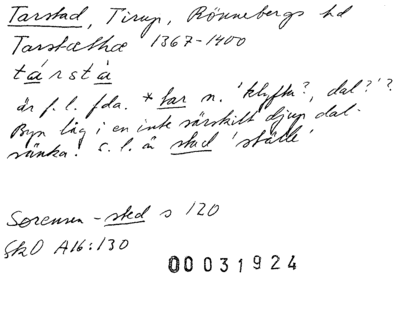 Tarstad, Tirup, Rönnebergs hd
Tarstathæ 1367-1400
társtá
är f. l. fda. *tar n. 'klyfta?, dal?'?
Byn låg i en inte särskilt djup dal-
sänka. s. l. är stad 'ställe'
Sørensen -sted s 120
SkO A16:130
00031924